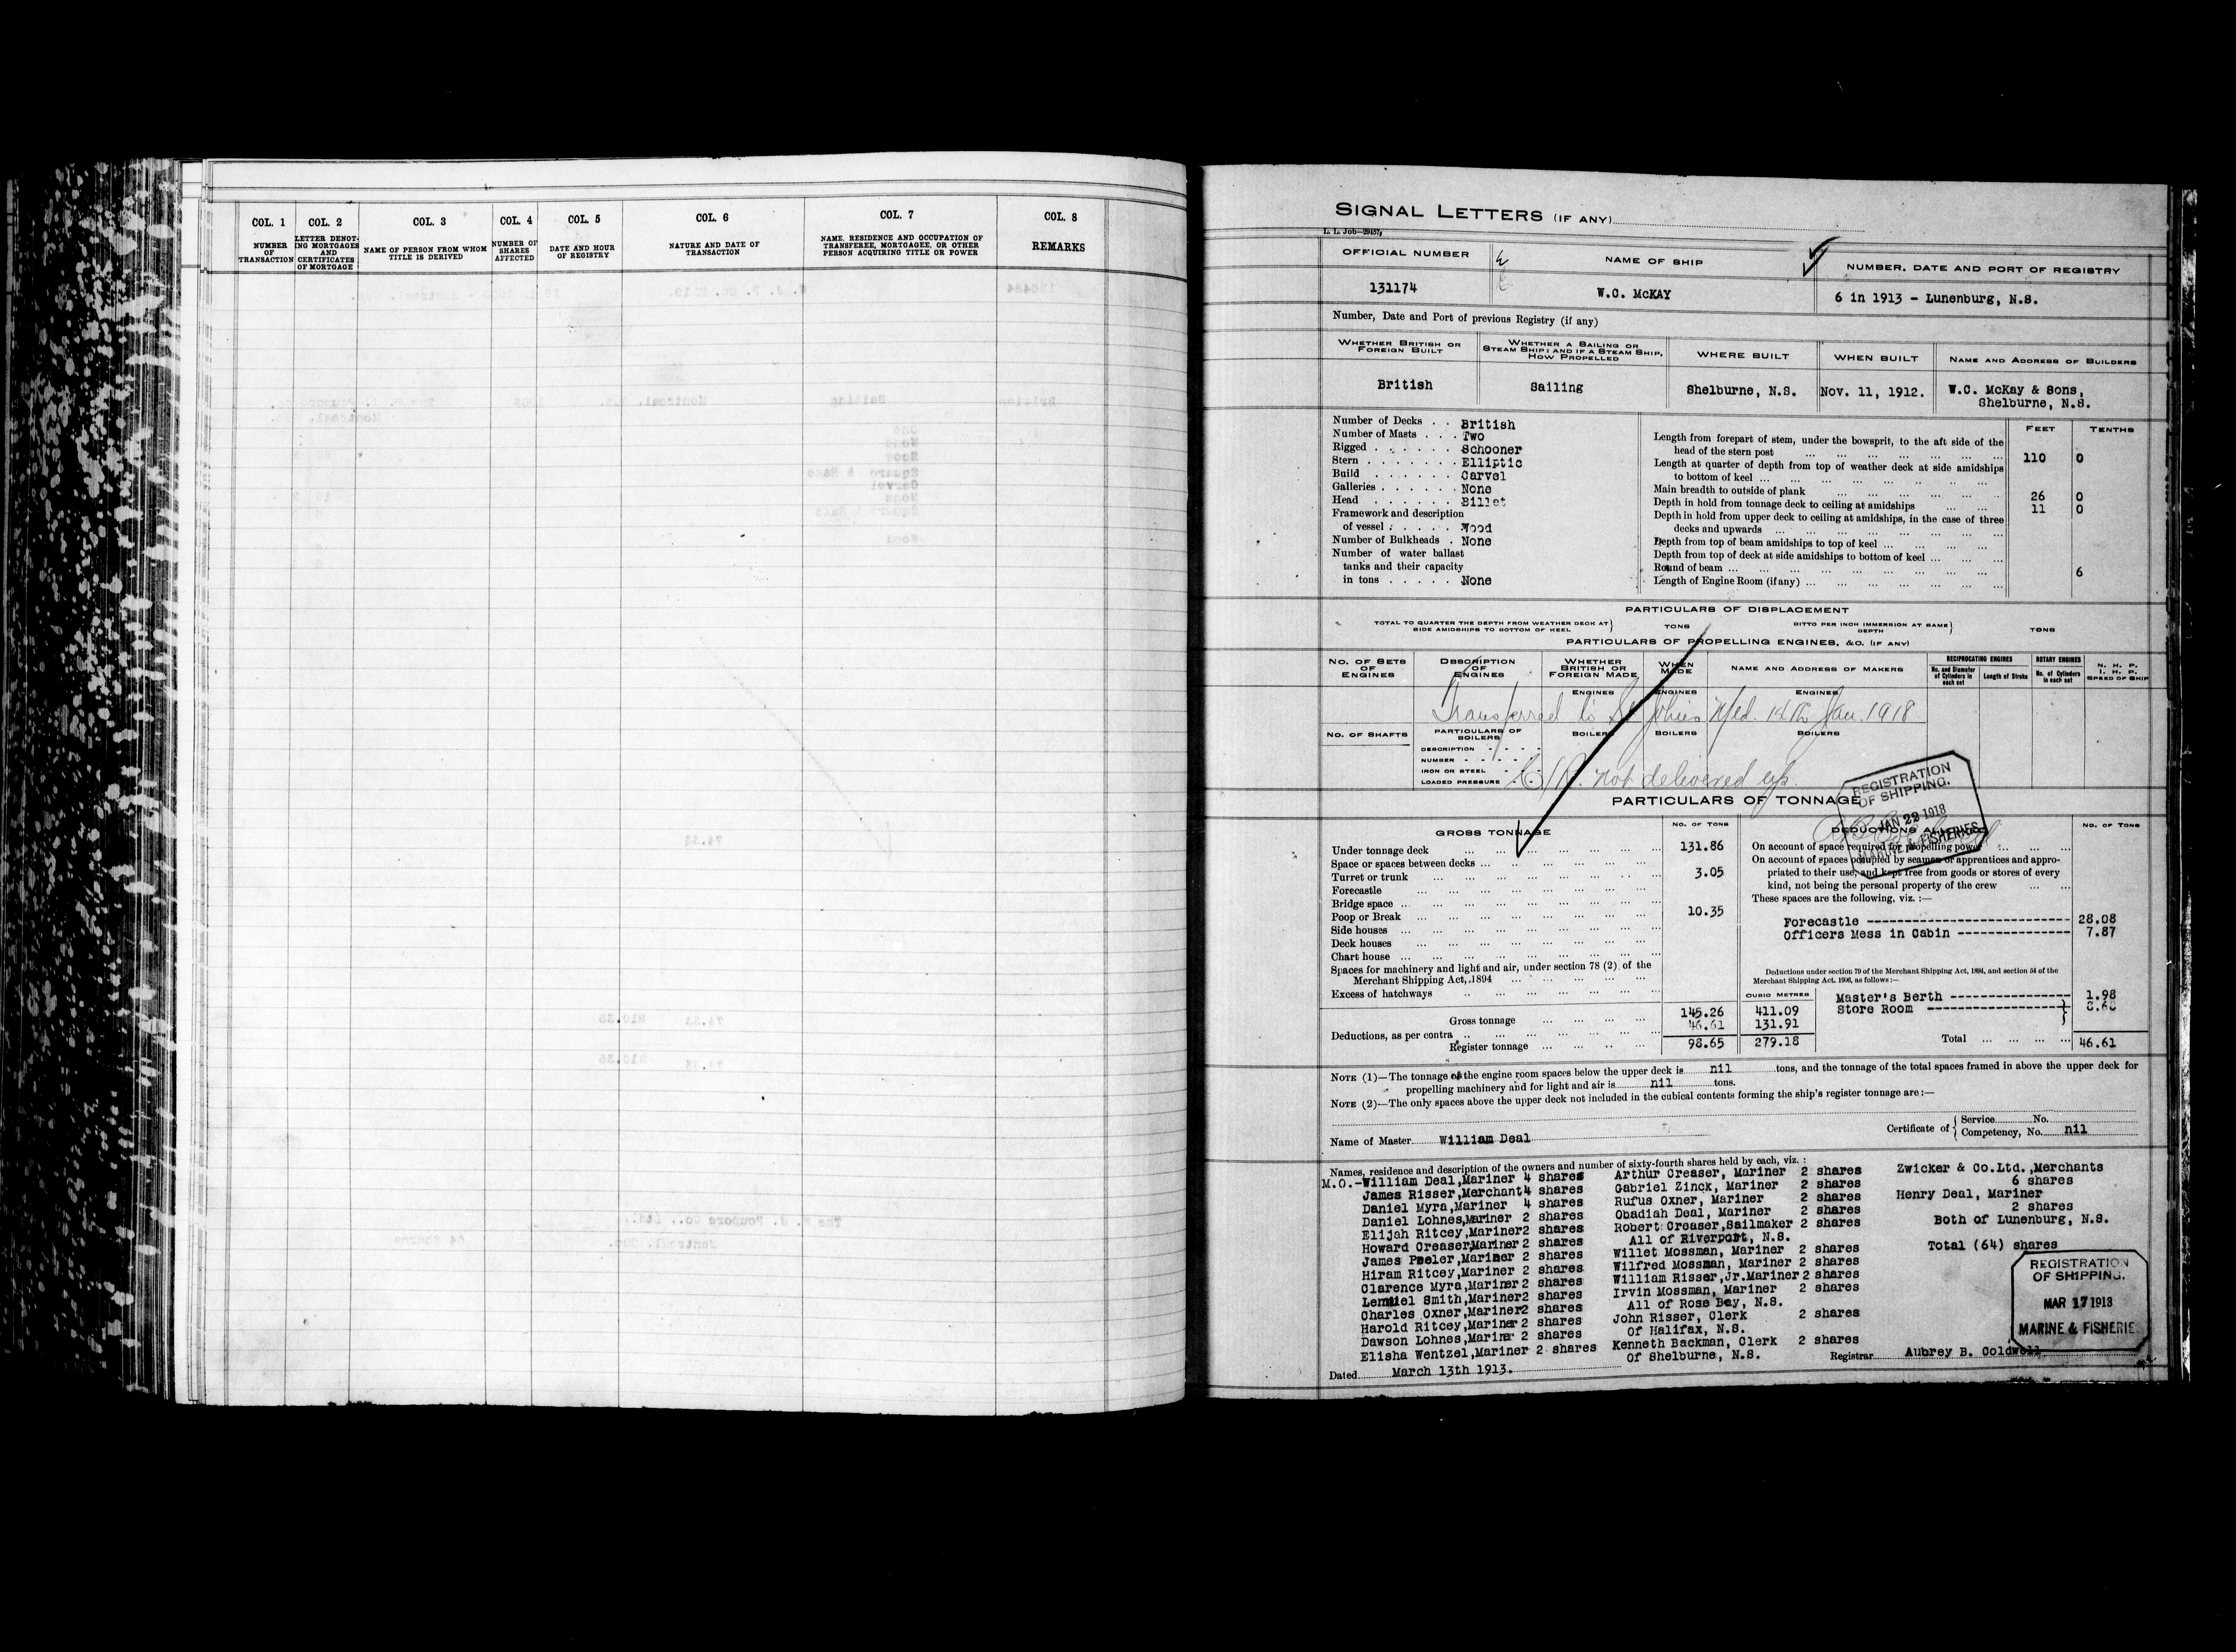 COL. 1
NUMBER OF TRANSACTION
COL. 2
LETTER DENOTING MORTGAGES AND CERTIFICATES OF MORTGAGE
COL. 3
NAME OF PERSON FROM WHOM TITLE IS DERIVED
COL. 4
NUMBER OF SHARES AFFECTED
COL. 5
DATE AND HOUR OF REGISTRY
COL. 6
NATURE AND DATE OF TRANSACTION
COL. 7
NAME, RESIDENCE AND OCCUPATION OF TRANSFEREE, MORTGAGEE, OR OTHER PERSON ACQUIRING TITLE OR POWER
COL. 8
REMARKS
SIGNAL LETTERS (IF ANY)
L. L. Job—29157
OFFICIAL NUMBER
NAME OF SHIP
NUMBER, DATE AND PORT OF REGISTRY
131174
W.C. McKAY
6 in 1913 - Lunenburg, N.S.
Number, Date and Port of previous Registry (if any)
WHETHER BRITISH OR FOREIGN BUILT
WHETHER A SAILING OR STEAM SHIP; AND IF A STEAM SHIP, HOW PROPELLED
WHERE BUILT
WHEN BUILT
NAME AND ADDRESS OF BUILDERS
British
Sailing
Shelburne, N.S.
Nov. 11, 1912.
W.C. McKay & Sons,
Shelburne, N.S.
Number of Decks . . British
Number of Masts . . . Two
Rigged . . . . . . Schooner
Stern . . . . . . . Elliptic
Build . . . . . . Carvel
Galleries . . . . . . None
Head . . . . . . Billet
Framework and description
of vessel . . . . . Wood
Number of Bulkheads . None
Number of water ballast
tanks and their capacity
in tons . . . . . None
FEET TENTHS
Length from forepart of stem, under the bowsprit, to the aft side of the
head of the stern post 110 0
Length at quarter of depth from top of weather deck at side amidships
to bottom of keel
Main breadth to outside of plank 26 0
Depth in hold from tonnage deck to ceiling at amidships 11 0
Depth in hold from upper deck to ceiling at amidships, in the case of three
decks and upwards
Depth from top of beam amidships to top of keel
Depth from top of deck at side amidships to bottom of keel
Round of beam 6
Length of Engine Room (if any)
PARTICULARS OF DISPLACEMENT
TOTAL TO QUARTER THE DEPTH FROM WEATHER DECK AT SIDE AMIDSHIPS TO BOTTOM OF KEEL
TONS
DITTO PER INCH IMMERSION AT SAME DEPTH
TONS
PARTICULARS OF PROPELLING ENGINES, &C. (IF ANY)
NO. OF SETS OF ENGINES
DESCRIPTION OF ENGINES
WHETHER BRITISH OR FOREIGN MADE
WHEN MADE
NAME AND ADDRESS OF MAKERS
RECIPROCATING ENGINES
No. and Diameter of Cylinders in each set
Length of Stroke
ROTARY ENGINES
No. of Cylinders in each set
N. H. P.
I. H. P.
SPEED OF SHIP
ENGINES
ENGINES
ENGINES
Transferred to St Johns Nfld. 14th Jan. 1918.
NO. OF SHAFTS
PARTICULARS OF BOILERS
BOILERS
BOILERS
BOILERS
DESCRIPTION
NUMBER
IRON OR STEEL
LOADED PRESSURE
C/R. not delivered up.
REGISTRATION
OF SHIPPING.
JAN 22 1918
MARINE & FISHERIES
PARTICULARS OF TONNAGE
GROSS TONNAGE
NO. OF TONS
DEDUCTIONS ALLOWED
NO. OF TONS
Under tonnage deck 131.86
Space or spaces between decks
Turret or trunk 3.05
Forecastle
Bridge space
Poop or Break 10.35
Side houses
Deck houses
Chart house
Spaces for machinery and light and air, under section 78 (2) of the
Merchant Shipping Act, 1894
Excess of hatchways
CUBIC METRES
Gross tonnage 145.26 411.09
Deductions, as per contra 46.61 131.91
Register tonnage 98.65 279.18
On account of space required for propelling power
On account of spaces occupied by seamen or apprentices and appro-
priated to their use, and kept free from goods or stores of every
kind, not being the personal property of the crew
These spaces are the following, viz. :—
Forecastle 28.08
Officers Mess in Cabin 7.87
Deductions under section 79 of the Merchant Shipping Act, 1894, and section 54 of the
Merchant Shipping Act, 1906, as follows:—
Master's Berth 1.98
Store Room
Total 46.61
NOTE (1)—The tonnage of the engine room spaces below the upper deck is nil tons, and the tonnage of the total spaces framed in above the upper deck for
propelling machinery and for light and air is nil tons.
NOTE (2)—The only spaces above the upper deck not included in the cubical contents forming the ship's register tonnage are:—
Name of Master William Deal
Certificate of
Service No.
Competency, No. nil
Names, residence and description of the owners and number of sixty-fourth shares held by each, viz. :
M.O.-William Deal,Mariner 4 shares
James Risser,Merchant4 shares
Daniel Myra,Mariner 4 shares
Daniel Lohnes,Mariner 2 shares
Elijah Ritcey,Mariner2 shares
Howard Creaser,Mariner 2 shares
James Peeler,Mariner 2 shares
Hiram Ritcey,Mariner 2 shares
Clarence Myra,Mariner2 shares
Lemuel Smith,Mariner2 shares
Charles Oxner,Mariner2 shares
Harold Ritcey,Mariner 2 shares
Dawson Lohnes,Mariner 2 shares
Elisha Wentzel,Mariner 2 shares
Arthur Creaser, Mariner 2 shares
Gabriel Zinck, Mariner 2 shares
Rufus Oxner, Mariner 2 shares
Obadiah Deal, Mariner 2 shares
Robert Creaser,Sailmaker 2 shares
All of Riverport, N.S.
Willet Mossman, Mariner 2 shares
Wilfred Mossman, Mariner 2 shares
William Risser,Jr.Mariner 2 shares
Irvin Mossman, Mariner 2 shares
All of Rose Bay, N.S.
John Risser, Clerk 2 shares
Of Halifax, N.S.
Kenneth Backman, Clerk 2 shares
Of Shelburne, N.S.
Zwicker & Co.Ltd.,Merchants
6 shares
Henry Deal, Mariner
2 shares
Both of Lunenburg, N.S.
Total (64) shares
REGISTRATION
OF SHIPPING.
MAR 17 1913
MARINE & FISHERIES
Dated March 13th 1913.
Registrar Aubrey B. Coldwell